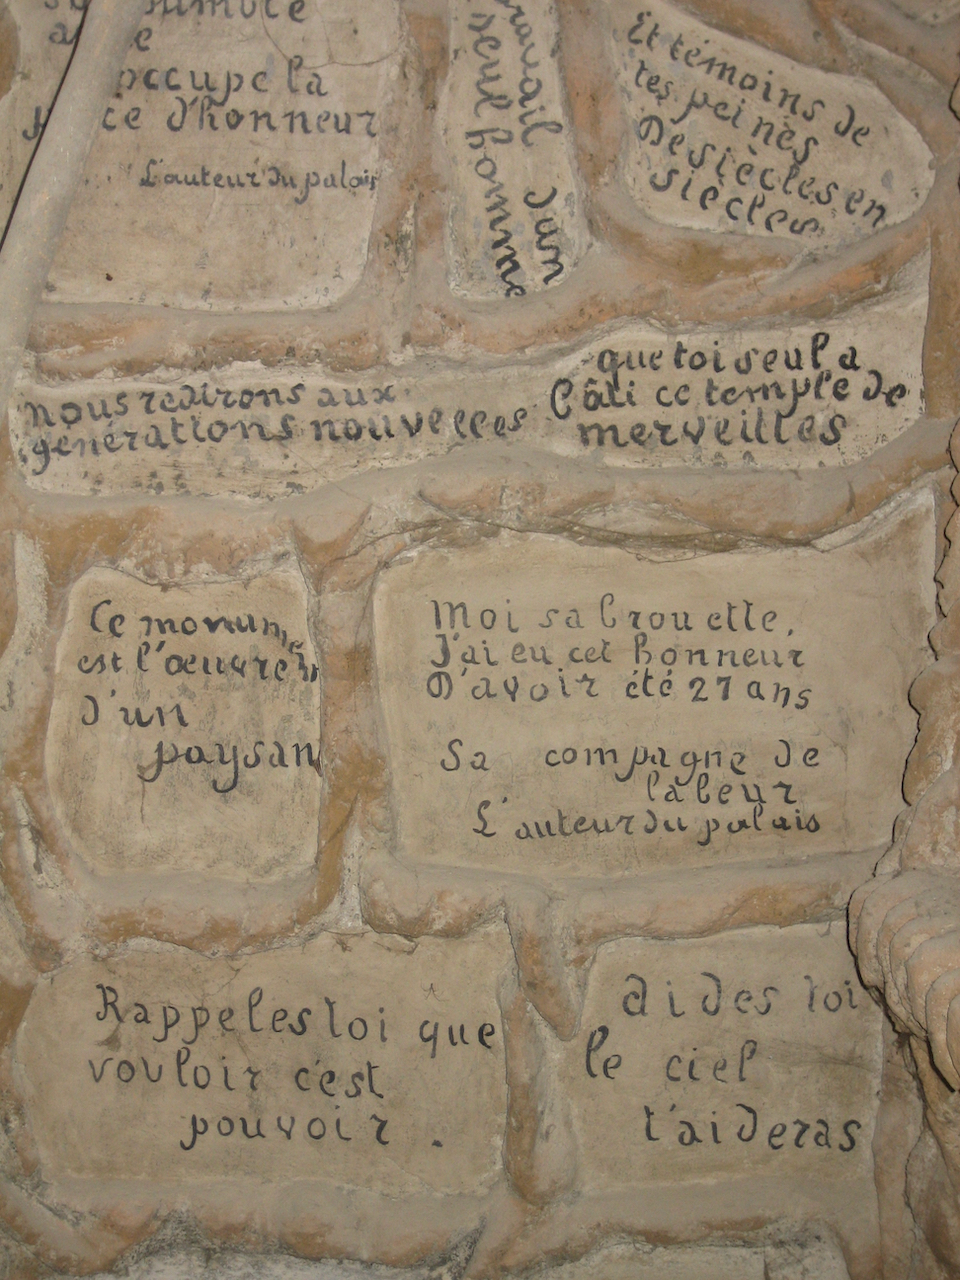 humble
occupe la
ce d'honneur
L'auteur du palais
travail
d'un
seul homme
Et témoins de
tes peines
De siècles en
siècles
nous redirons aux
générations nouvelles
que toi seul a
bâti ce temple de
merveilles
Ce monument
est l'œuvre
d'un
paysan
Moi sa brouette,
J'ai eu cet honneur
D'avoir été 27 ans
Sa compagne de
labeur
L'auteur du palais
Rappeles toi que
vouloir c'est
pouvoir.
aides toi
le ciel
t'aideras